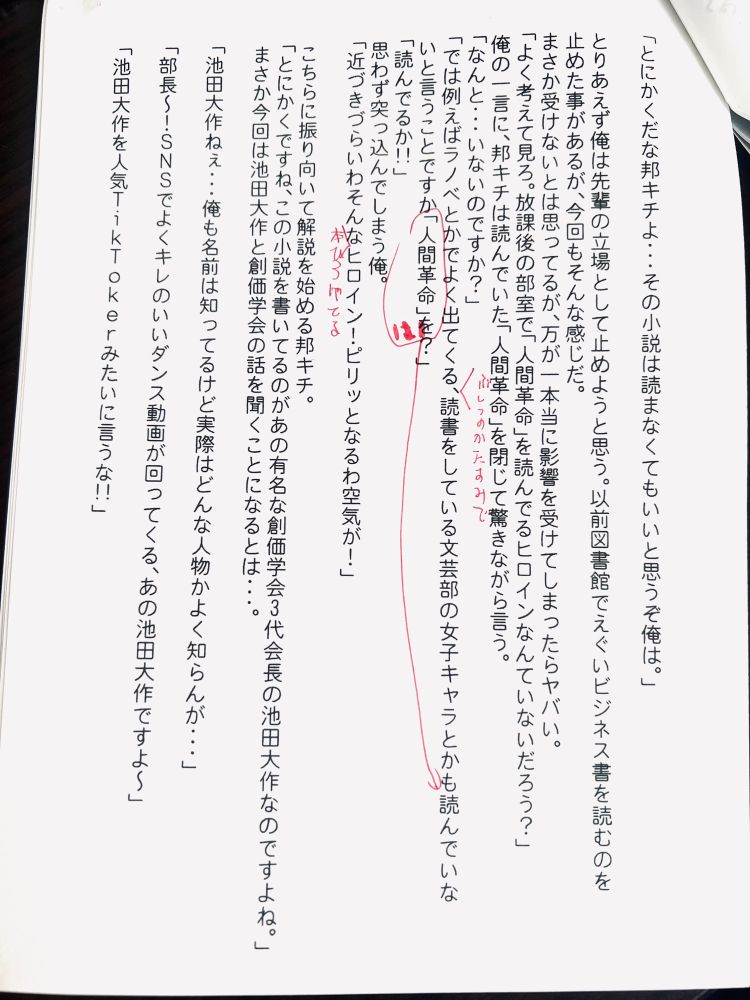 「とにかくだな邦キチよ・・・その小説は読まなくてもいいと思うぞ俺は。」
とりあえず俺は先輩の立場として止めようと思う。以前図書館でえぐいビジネス書を読むのを
止めた事があるが、今回もそんな感じだ。
まさか受けないとは思ってるが、万が一本当に影響を受けてしまったらヤバい。
「よく考えて見ろ。放課後の部室で「人間革命」を読んでるヒロインなんていないだろう？」
俺の一言に、邦キチは読んでいた「人間革命」を閉じて驚きながら言う。
「なんと・・・いないのですか？」
ぶしつのかたすみで
「では例えばラノベとかでよく出てくる、読書をしている文芸部の女子キャラとかも読んでいな
いと言うことですか「人間革命」を？」
は
「読んでるか！！」
思わず突っ込んでしまう俺。
「近づきづらいわそんなヒロイン！ピリッとなるわ空気が！」
こちらに振り向いて解説を始める邦キチ。
「とにかくですね、この小説を書いてるのがあの有名な創価学会3代会長の池田大作なのですよね。」
まさか今回は池田大作と創価学会の話を聞くことになるとは・・・。
「池田大作ねぇ・・・俺も名前は知ってるけど実際はどんな人物かよく知らんが・・・」
「部長～！SNSでよくキレのいいダンス動画が回ってくる、あの池田大作ですよ～」
「池田大作を人気TikTokerみたいに言うな！！」